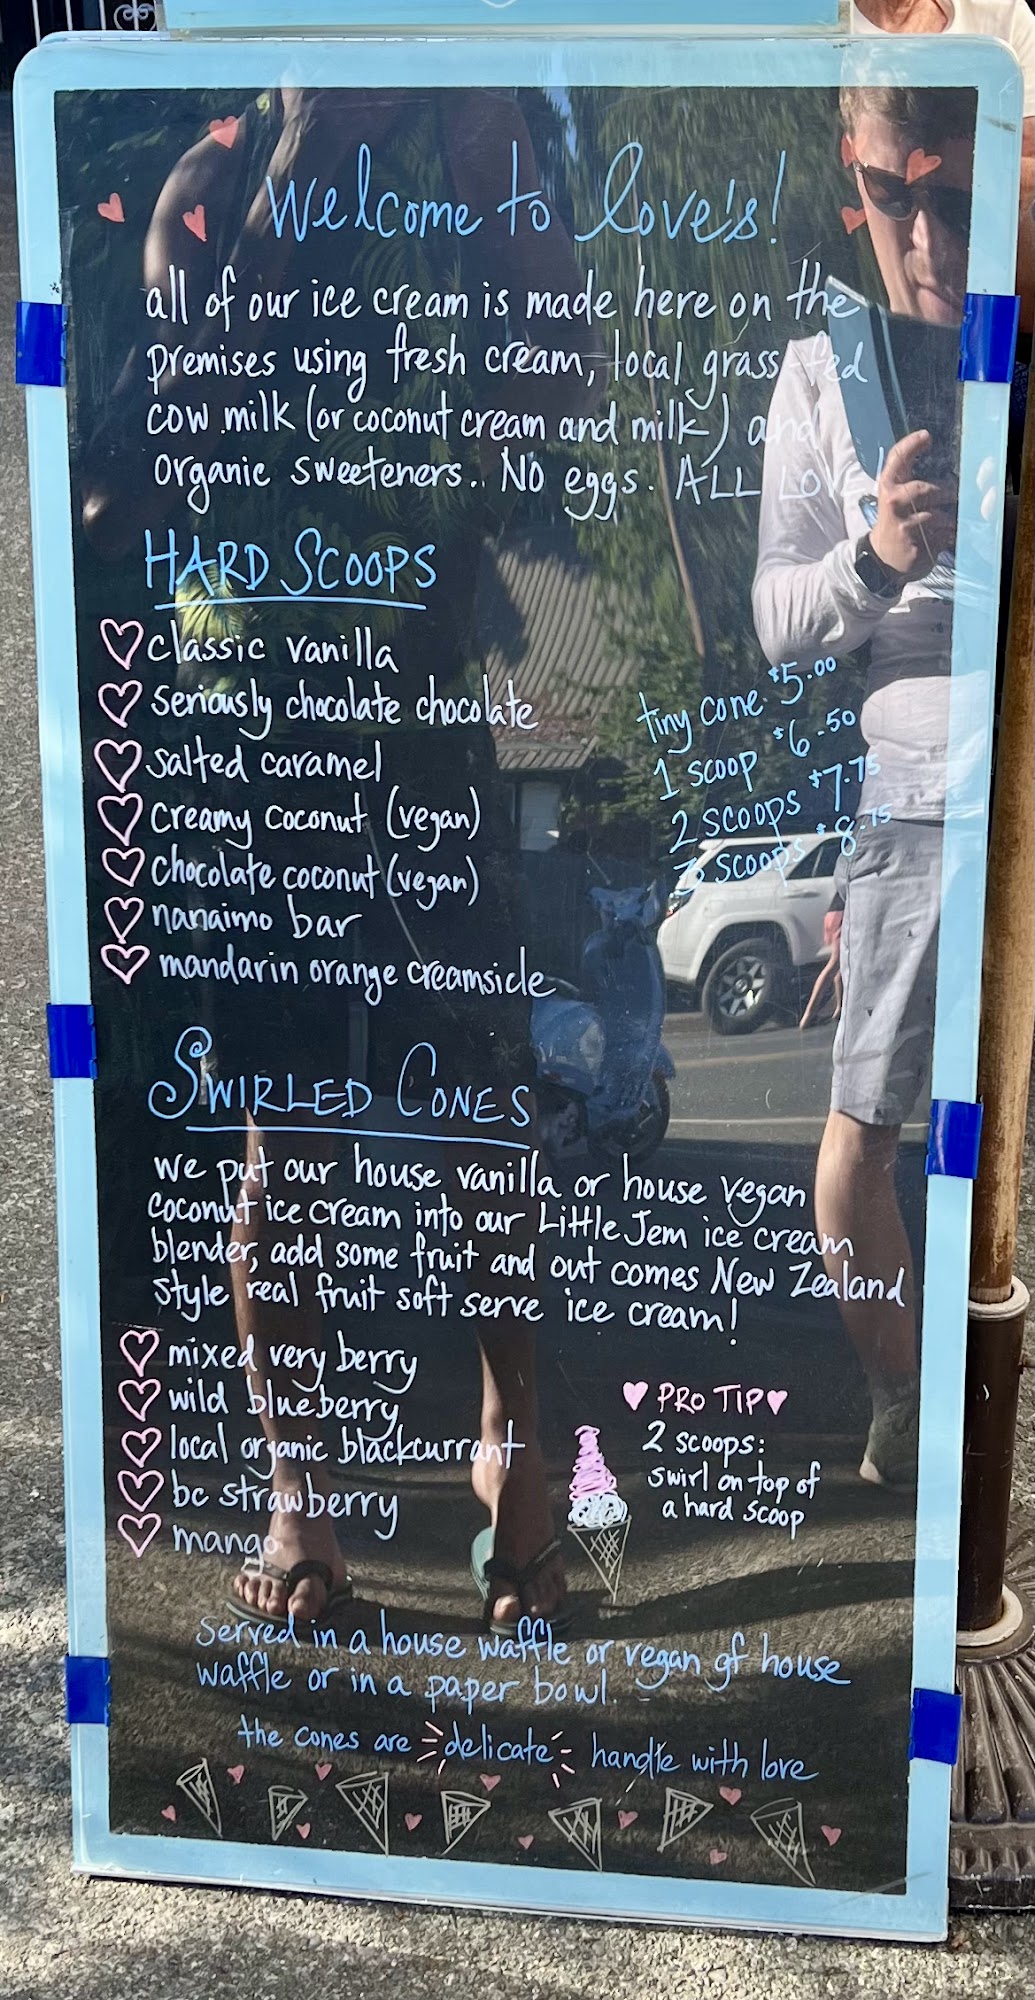 Welcome to love's!
all of our ice cream is made here on the
premises using fresh cream, local grass-fed
cow milk (or coconut cream and milk) and
organic sweeteners.. No eggs. ALL LOVE!
HARD SCOOPS
classic vanilla
seriously chocolate chocolate
salted caramel
creamy coconut (vegan)
chocolate coconut (vegan)
nanaimo bar
mandarin orange creamsicle
tiny cone $5.00
1 scoop $6.50
2 scoops $7.75
3 scoops $8.75
SWIRLED CONES
we put our house vanilla or house vegan
coconut ice cream into our Little Jem ice cream
blender, add some fruit and out comes New Zealand
style real fruit soft serve ice cream!
mixed very berry
wild blueberry
local organic blackcurrant
bc strawberry
mango
PRO TIP
2 scoops:
swirl on top of
a hard scoop
served in a house waffle or vegan gf house
waffle or in a paper bowl.
the cones are delicate handle with love